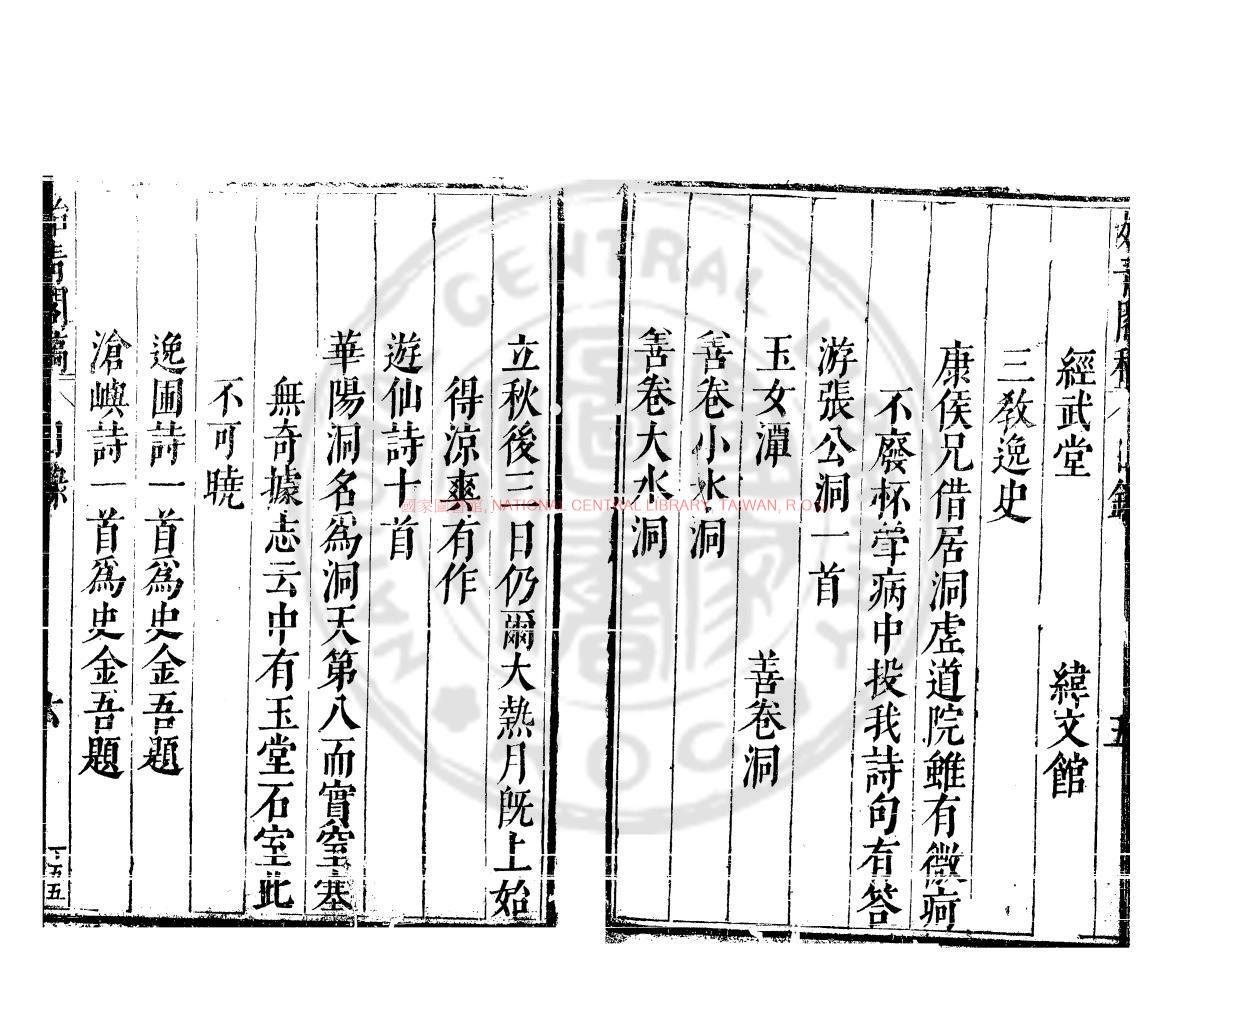 經武堂　緯文館
三教逸史
康侯兄借居洞虛道院雖有微疴
不廢杯斝病中投我詩句有答
游張公洞一首
玉女潭　善卷洞
善卷小水洞
善卷大水洞
五
立秋後三日仍爾大熱月既上始
得涼爽有作
遊仙詩十首
華陽洞名為洞天第八而實窒塞
無奇據志云中有玉堂石室此
不可曉
逸圃詩一首為史金吾題
滄嶼詩一首為史金吾題
六
國家圖書館, NATIONAL CENTRAL LIBRARY, TAIWAN, R.O.C